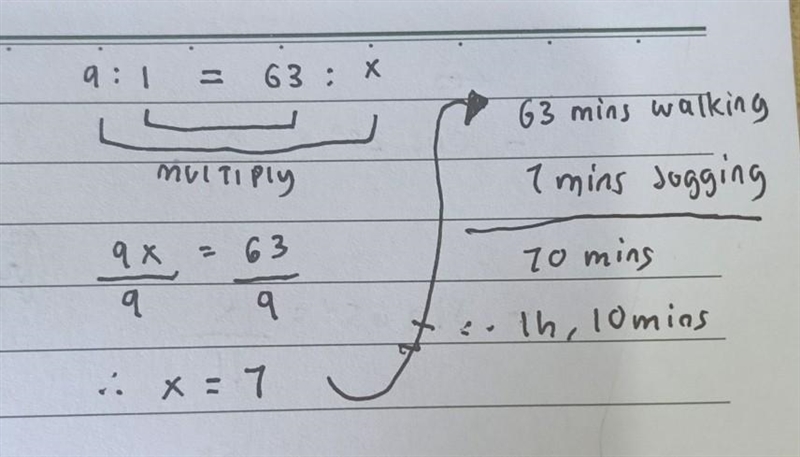 9 : 1 = 63 : x
MULTIPLY
9x = 63
9 9
∴ x = 7
63 mins walking
7 mins Jogging
70 mins
∴ 1h, 10mins